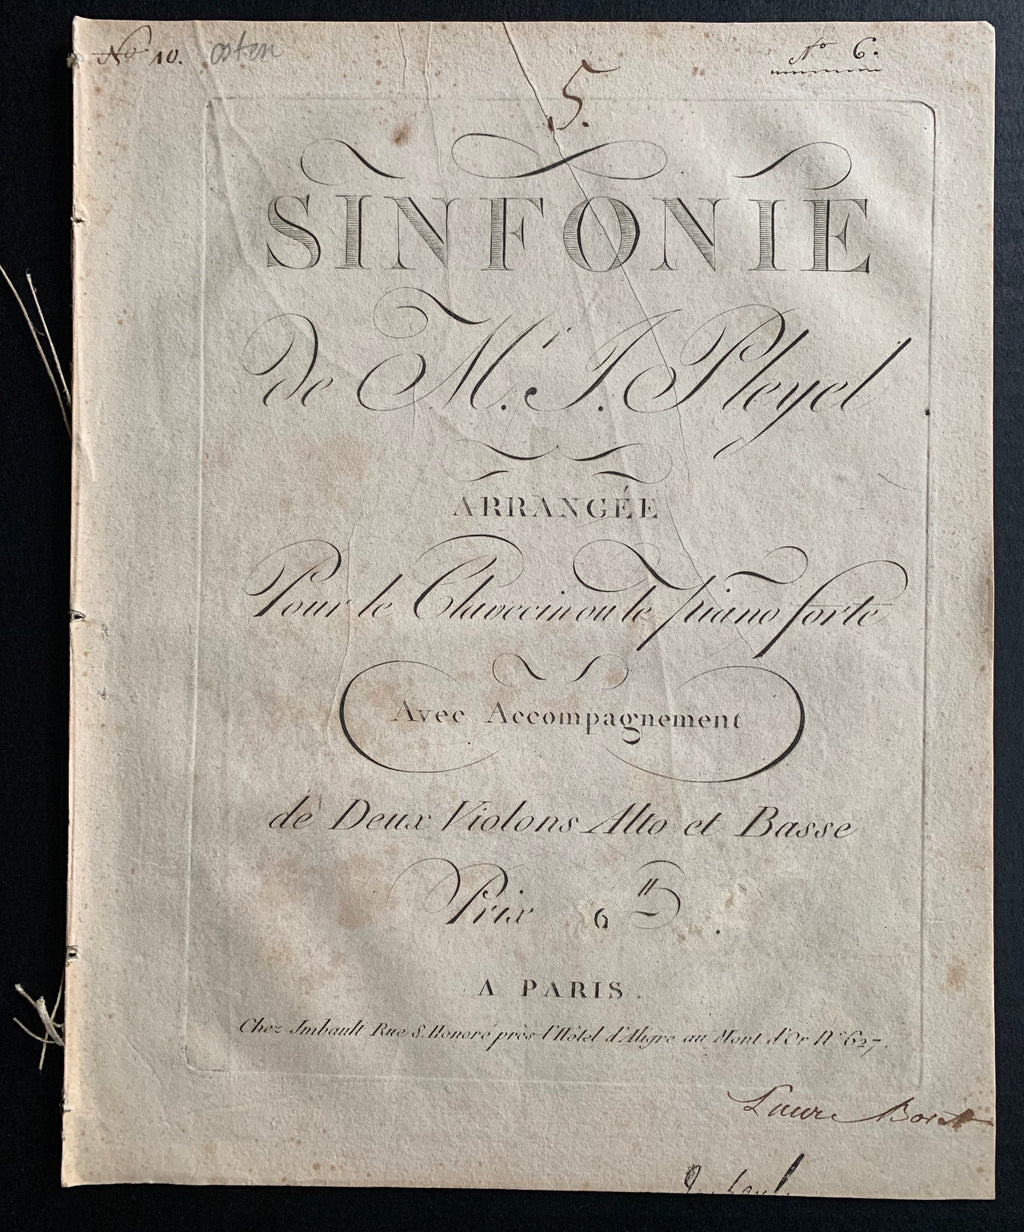 No 10. osten
No 6.
5.
SINFONIE
de Mr. J. Pleyel
ARRANGÉE
Pour le Clavecin ou le piano forte
Avec Accompagnement
de Deux Violons Alto et Basse
Prix 6"
A PARIS.
Chez Imbault Rue S. Honoré près l'Hôtel d'Aligre au Mont d'Or No 627.
Laure